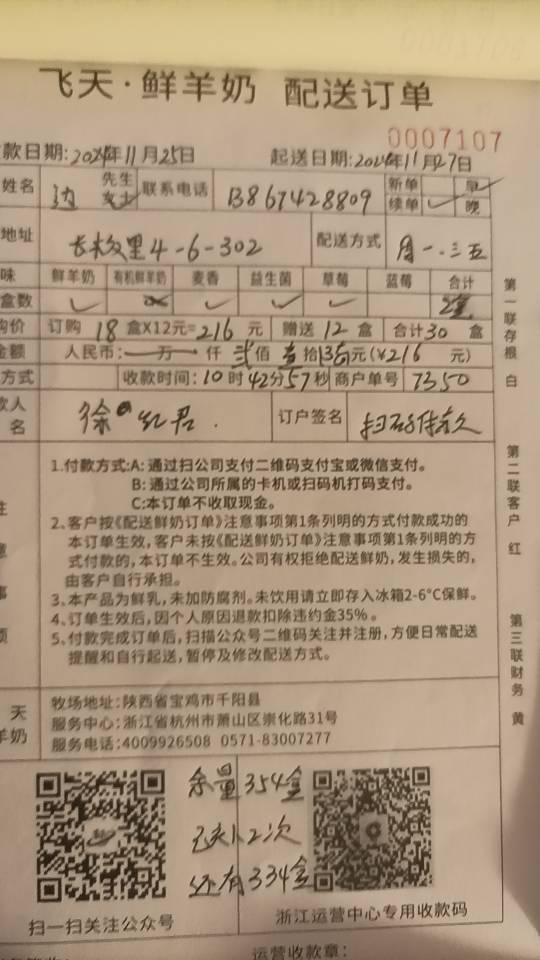 飞天·鲜羊奶 配送订单
0007107
款日期:2024年11月25日 起送日期:2024年11月27日
姓名 边 先生 女士 联系电话 13867428809 新单 早
续单 晚
地址 4-6-302 配送方式 周一.三五
味 鲜羊奶 有机鲜羊奶 麦香 益生菌 草莓 蓝莓 合计
盒数
购价 订购 18 盒X12元=216 元 赠送 12 盒 合计30 盒
金额 人民币: 万 仟 贰佰 壹拾 元(¥216 元)
方式 收款时间:10时42分57秒 商户单号 7350
款人 名 徐 红君. 订户签名 扫码
1.付款方式:A:通过扫公司支付二维码支付宝或微信支付。
B:通过公司所属的卡机或扫码机打码支付。
C:本订单不收取现金。
2、客户按《配送鲜奶订单》注意事项第1条列明的方式付款成功的
本订单生效,客户未按《配送鲜奶订单》注意事项第1条列明的方
式付款的,本订单不生效。公司有权拒绝配送鲜奶,发生损失的,
由客户自行承担。
3、本产品为鲜乳,未加防腐剂。未饮用请立即存入冰箱2-6°C保鲜。
4、订单生效后,因个人原因退款扣除违约金35%。
5、付款完成订单后,扫描公众号二维码关注并注册,方便日常配送
提醒和自行起送,暂停及修改配送方式。
注
意
事
项
第一联存根 白
第二联客户 红
第三联财务 黄
天
羊奶
牧场地址:陕西省宝鸡市千阳县
服务中心:浙江省杭州市萧山区崇化路31号
服务电话:4009926508 0571-83007277
余量354盒
还有334盒
扫一扫关注公众号
浙江运营中心专用收款码
运营收款章: